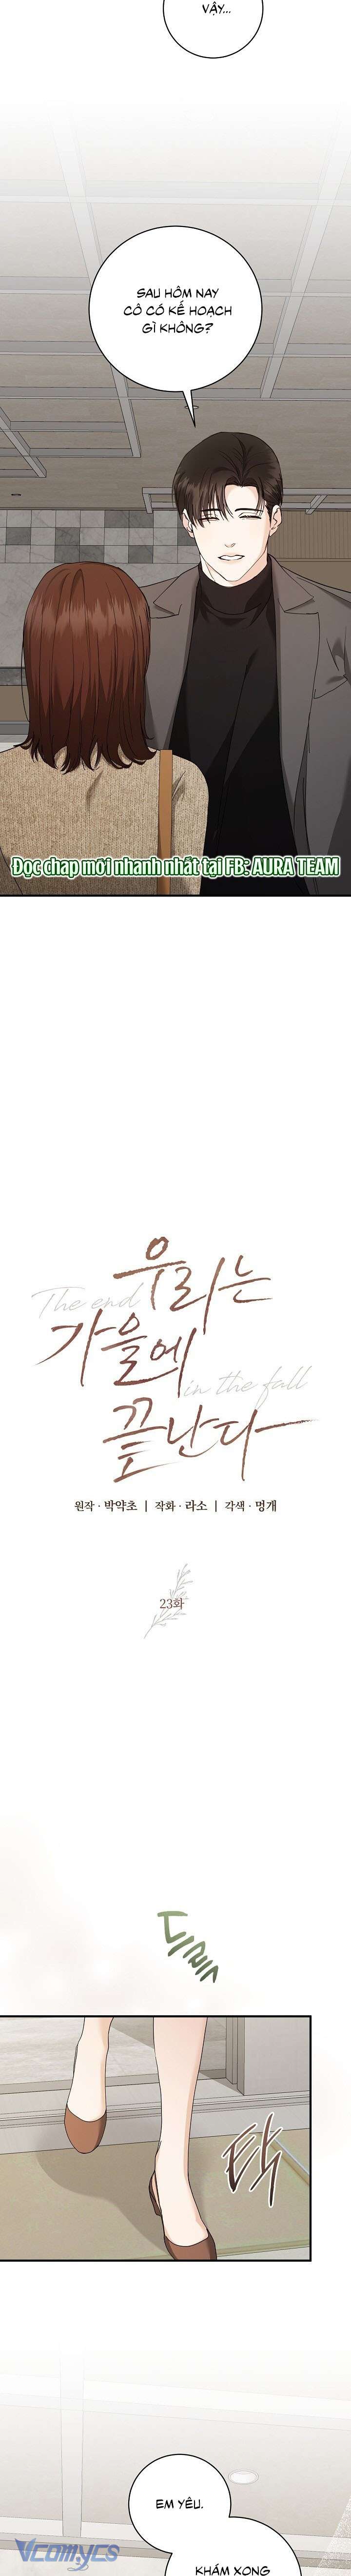 VẬY...
SAU HÔM NAY
CÔ CÓ KẾ HOẠCH
GÌ KHÔNG?
Đọc chap mới nhanh nhất tại FB: AURA TEAM
The end
우리는
가을에
in the fall
끝난다
원작 · 박약초 | 작화 · 라소 | 각색 · 멍개
23화
드륵
탁
EM YÊU.
KHÁM XONG
VCOMYCS